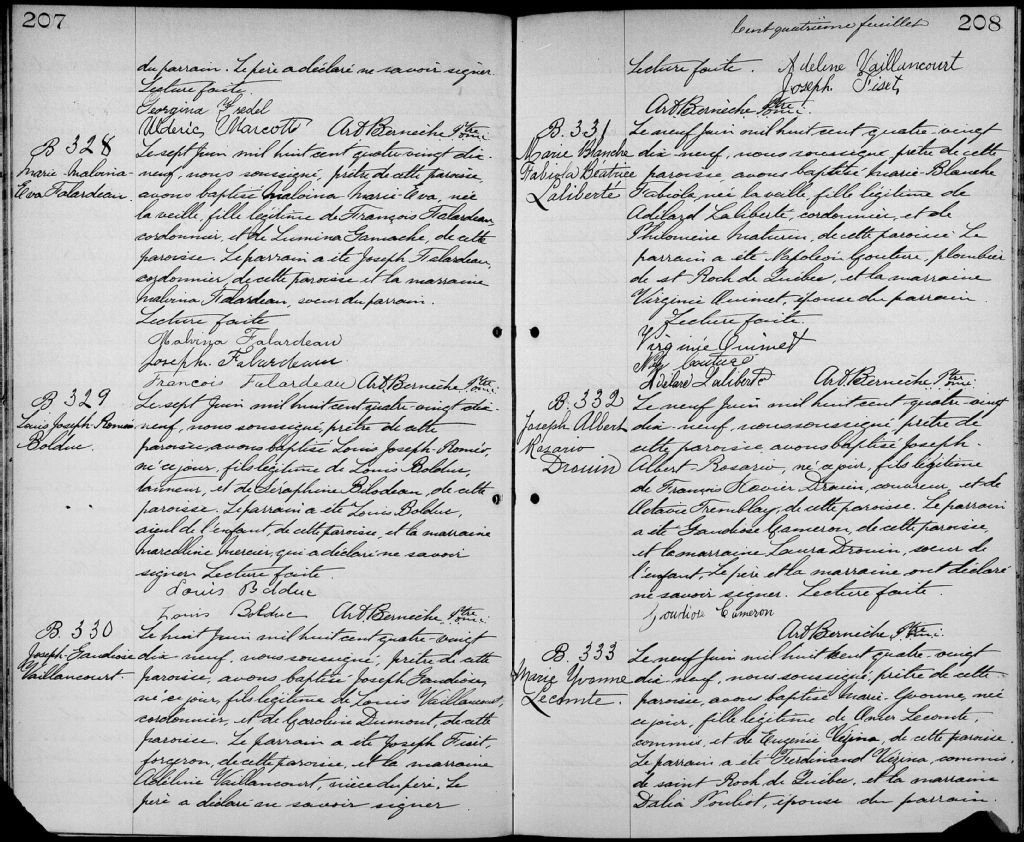 207
du parrain. Le père a déclaré ne savoir signer
Lecture faite.
Georgina
Ulderic Marcotte Art Bernèche Ptre
B 328
Marie-Malvina-
Eva Falardeau.
Le sept Juin mil huit cent quatre-vingt dix-
neuf, nous soussigné, prêtre de cette paroisse,
avons baptisé Malvina Marie-Eva, née
la veille, fille légitime de François Falardeau,
cordonnier, et de Lumina Gamache, de cette
paroisse. Le parrain a été Joseph Falardeau,
cordonnier, de cette paroisse et la marraine
Malvina Falardeau, soeur du parrain.
Lecture faite
Malvina Falardeau
Joseph. Falardeau.
Francois Falardeau Art Bernèche Ptre
B 329
Louis Joseph-Roméo
Bolduc.
Le sept Juin mil huit cent quatre-vingt dix-
neuf, nous soussigné, prêtre de cette
paroisse, avons baptisé Louis Joseph-Roméo,
né ce jour, fils légitime de Louis Bolduc,
tanneur, et de Séraphine Bilodeau, de cette
paroisse. Le parrain a été Louis Bolduc,
aieul de l'enfant, de cette paroisse, et la marraine
Marcelline Mercier, qui a déclaré ne savoir
signer. Lecture faite.
Louis Bolduc
Louis Bolduc Art Bernèche Ptre
B. 330
Joseph-Gaudiose
Vaillancourt
Le huit Juin mil huit cent quatre-vingt
dix-neuf, nous soussigné, prêtre de cette
paroisse, avons baptisé Joseph Gaudiose,
né ce jour, fils légitime de Louis Vaillancourt,
cordonnier, et de Caroline Dumont, de cette
paroisse. Le parrain a été Joseph Fiset,
forgeron, de cette paroisse, et la marraine
Adéline Vaillancourt, nièce du père. Le
père a déclaré ne savoir signer
Cent quatrième feuillet
208
Lecture faite. Adeline Vaillancourt
Joseph Fiset
Art Bernèche Ptre
B. 331
Marie Blanche
Fabiola Béatrice
Laliberté
Le neuf Juin mil huit cent quatre-vingt
dix-neuf, nous soussigné, prêtre de cette
paroisse, avons baptisé Marie-Blanche
Fabiola, née la veille, fille légitime de
Adélard Laliberté, cordonnier, et de
Philomène Mathurin, de cette paroisse. Le
parrain a été Napoléon Couture, plombier
de St Roch de Québec, et la marraine
Virginie Ouimet, épouse du parrain.
Lecture faite
Virginie Ouimet
Couture
Adélard Laliberté Art Bernèche Ptre
B. 332
Joseph Albert
Rosario
Drouin
Le neuf Juin mil huit cent quatre-vingt
dix-neuf, nous soussigné, prêtre de
cette paroisse, avons baptisé Joseph
Albert-Rosario, né ce jour, fils légitime
de François Xavier Drouin, couvreur, et de
Octavie Tremblay, de cette paroisse. Le parrain
a été Gaudiose Cameron, de cette paroisse,
et la marraine Laura Drouin, soeur de
l'enfant. Le père et la marraine ont déclaré
ne savoir signer. Lecture faite.
Goudiose Cameron
Art Bernèche, Ptre
B. 333
Marie Yvonne
Lecomte.
Le neuf Juin mil huit cent quatre-vingt
dix-neuf, nous soussigné, prêtre de cette
paroisse, avons baptisé Marie-Yvonne, née
ce jour, fille légitime de Omer Lecomte,
commis, et de Eugénie Vézina, de cette paroisse.
Le parrain a été Ferdinand Vézina, commis,
de saint Roch de Québec, et la marraine
Dalia Pouliot, épouse du parrain.